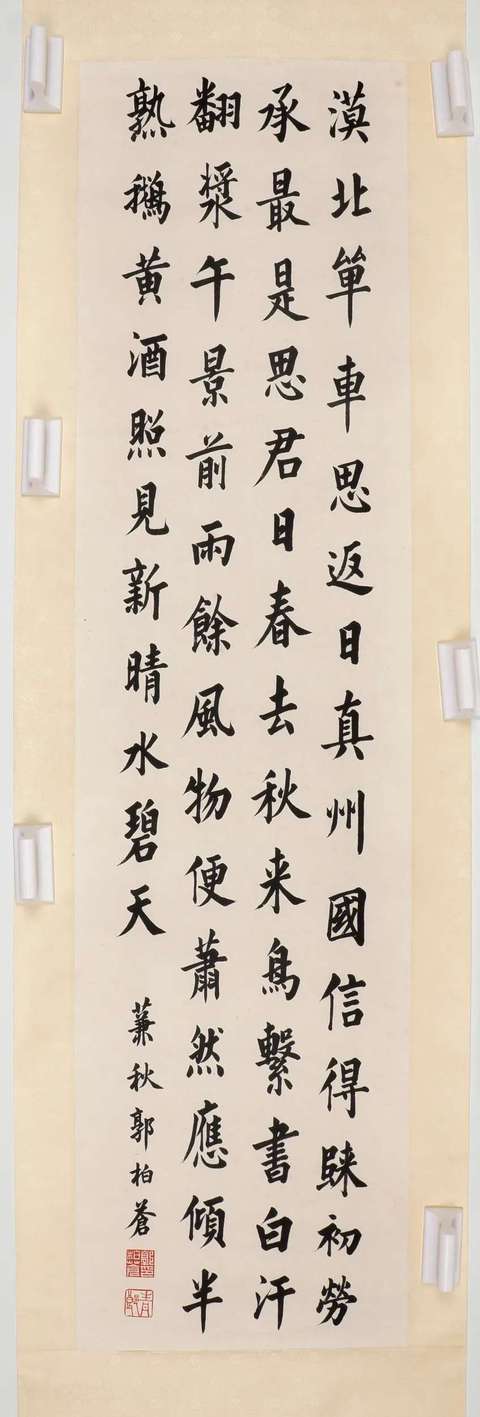 漠北單車思返日真州國信得歸初勞
承最是思君日春去秋来鳥繫書白汗
翻漿午景前雨餘風物便蕭然應傾半
熟鵝黄酒照見新晴水碧天
蒹秋郭柏蒼